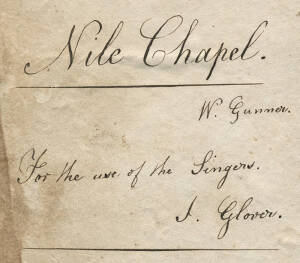 Nile Chapel.
W. Gunner.
For the use of the Singers.
J. Glover.